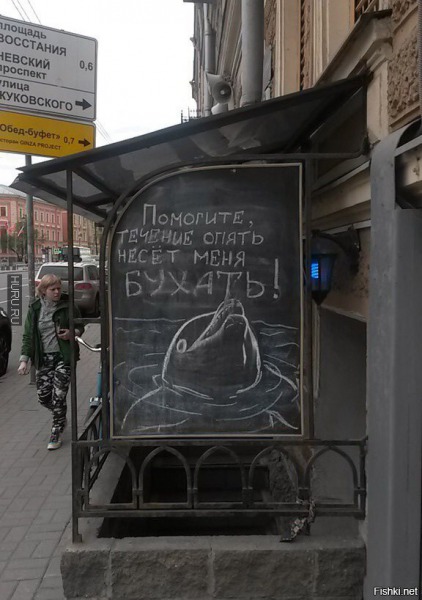 площадь
ВОССТАНИЯ
НЕВСКИЙ
проспект
0,6
улица
ЖУКОВСКОГО
«Обед-буфет»
ресторан GINZA PROJECT
0,7
Помогите,
течение опять
несёт меня
БУХАТЬ!
HURU.RU
Fishki.net